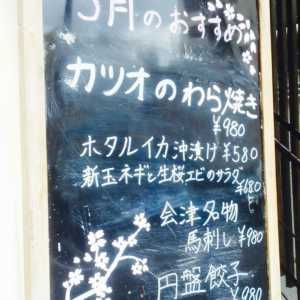 月のおすすめ
カツオのわら焼き
¥980
ホタルイカ沖漬け ¥580
新玉ネギと生桜エビのサラダ
¥680
会津名物
馬刺し ¥980
円盤餃子
¥980